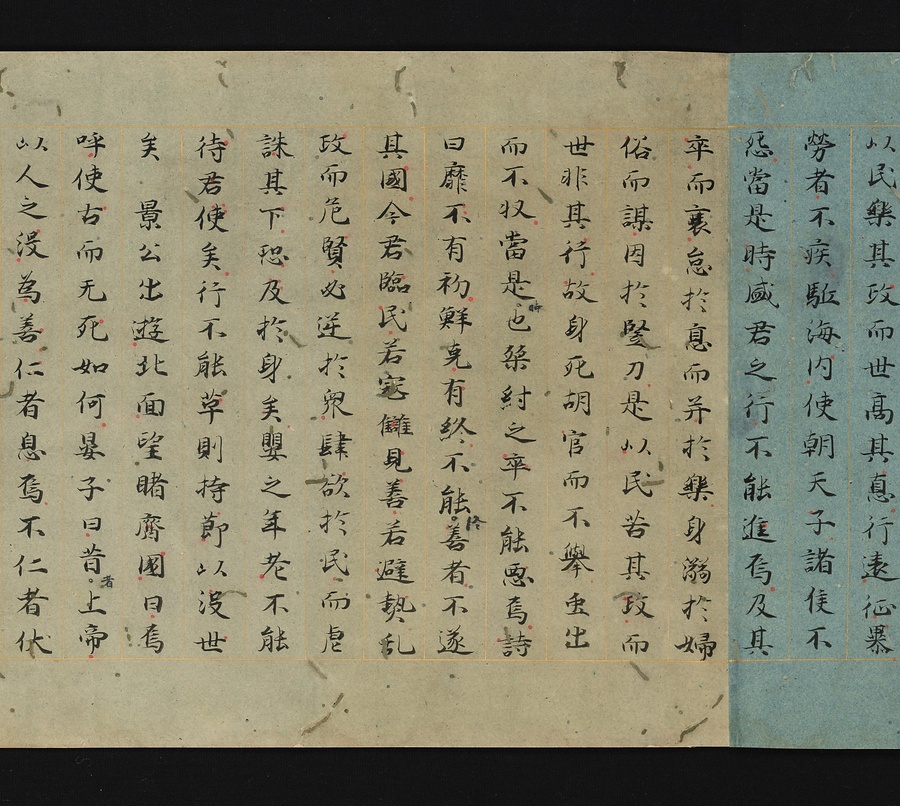 以民樂其政而世高其悳行遠征暴
勞者不疾駈海内使朝天子諸侯不
怨當是時盛君之行不能進焉及其
卒而襄怠於息而并於樂身溺於婦
俗而謀因於竪刀是以民苦其政而
世非其行故身死胡宮而不舉虫出
而不収當是時也桀紂之卒不能悪焉詩
曰靡不有初鮮克有終不能終善者不遂
其國今君臨民若寇讎見善若避熱乱
政而危賢必逆於衆肆欲於民而虐
誅其下恐及於身矣嬰之年老不能
待君使矣行不能草則持節以没世
矣 景公出遊北面望睹齊國曰焉
呼使古而无死如何晏子曰昔者上帝
以人之没為善仁者息焉不仁者伏